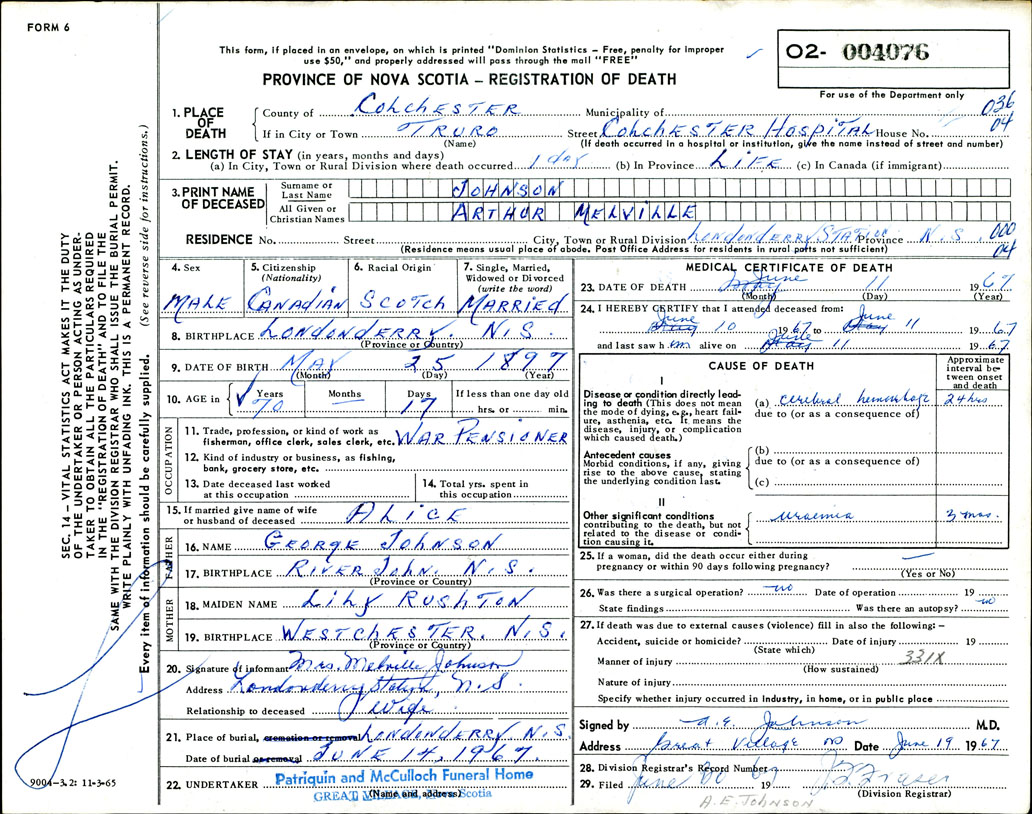 FORM 6
This form, if placed in an envelope, on which is printed "Dominion Statistics – Free, penalty for improper
use $50," and properly addressed will pass through the mail "FREE"
PROVINCE OF NOVA SCOTIA – REGISTRATION OF DEATH
02- 004076
For use of the Department only
SEC. 14 – VITAL STATISTICS ACT MAKES IT THE DUTY
OF THE UNDERTAKER OR PERSON ACTING AS UNDER-
TAKER TO OBTAIN ALL THE PARTICULARS REQUIRED
IN THE "REGISTRATION OF DEATH" AND TO FILE THE
SAME WITH THE DIVISION REGISTRAR WHO SHALL ISSUE THE BURIAL PERMIT.
WRITE PLAINLY WITH UNFADING INK. THIS IS A PERMANENT RECORD.
Every item of information should be carefully supplied. (See reverse side for instructions.)
1. PLACE OF DEATH
County of COLCHESTER Municipality of 036
If in City or Town TRURO Street COLCHESTER HOSPITAL House No. 04
(Name) (If death occurred in a hospital or institution, give the name instead of street and number)
2. LENGTH OF STAY (in years, months and days)
(a) In City, Town or Rural Division where death occurred 1 day (b) In Province LIFE (c) In Canada (if immigrant)
3. PRINT NAME OF DECEASED
Surname or Last Name JOHNSON
All Given or Christian Names ARTHUR MELVILLE
RESIDENCE No. Street City, Town or Rural Division LONDONDERRY STATION Province N.S. 000
(Residence means usual place of abode. Post Office Address for residents in rural parts not sufficient) 04
4. Sex MALE
5. Citizenship (Nationality) CANADIAN
6. Racial Origin SCOTCH
7. Single, Married, Widowed or Divorced (write the word) MARRIED
8. BIRTHPLACE LONDONDERRY, N.S.
(Province or Country)
9. DATE OF BIRTH MAY 25 1897
(Month) (Day) (Year)
10. AGE in Years 70 Months Days 17 If less than one day old hrs. or min.
OCCUPATION
11. Trade, profession, or kind of work as
fisherman, office clerk, sales clerk, etc. WAR PENSIONER
12. Kind of industry or business, as fishing,
bank, grocery store, etc.
13. Date deceased last worked
at this occupation
14. Total yrs. spent in
this occupation
15. If married give name of wife
or husband of deceased ALICE
FATHER
16. NAME GEORGE JOHNSON
17. BIRTHPLACE RIVER JOHN. N.S.
(Province or Country)
MOTHER
18. MAIDEN NAME LILY RUSHTON
19. BIRTHPLACE WESTCHESTER. N.S.
(Province or Country)
20. Signature of informant Mrs. Melville Johnson
Address Londonderry Station, N.S.
Relationship to deceased Wife
21. Place of burial, cremation or removal LONDONDERRY N.S.
Date of burial or removal JUNE 14, 1967.
22. UNDERTAKER Patriquin and McCulloch Funeral Home
(Name and address)
GREAT Scotia
9004-3.2: 11-3-65
MEDICAL CERTIFICATE OF DEATH
23. DATE OF DEATH June 11 1967
(Month) (Day) (Year)
24. I HEREBY CERTIFY that I attended deceased from:
June 10 1967 to June 11 1967
and last saw him alive on June 11 1967
CAUSE OF DEATH
Approximate interval between onset and death
I
Disease or condition directly lead-
ing to death (This does not mean
the mode of dying, e.g., heart fail-
ure, asthenia, etc. It means the
disease, injury, or complication
which caused death.)
(a) cerebral hemorrhage 24 hrs
due to (or as a consequence of)
Antecedent causes
Morbid conditions, if any, giving
rise to the above cause, stating
the underlying condition last.
(b)
due to (or as a consequence of)
(c)
II
Other significant conditions
contributing to the death, but not
related to the disease or condi-
tion causing it.
uraemia 3 mos.
25. If a woman, did the death occur either during
pregnancy or within 90 days following pregnancy? —
(Yes or No)
26. Was there a surgical operation? no Date of operation 19
State findings Was there an autopsy? no
27. If death was due to external causes (violence) fill in also the following: –
Accident, suicide or homicide? Date of injury 19
(State which)
Manner of injury 331X
(How sustained)
Nature of injury
Specify whether injury occurred in industry, in home, or in public place
Signed by A.E. Johnson M.D.
Address Great Village NS Date June 19 1967
28. Division Registrar's Record Number
29. Filed June 20 1967
(Division Registrar)
A.E. JOHNSON